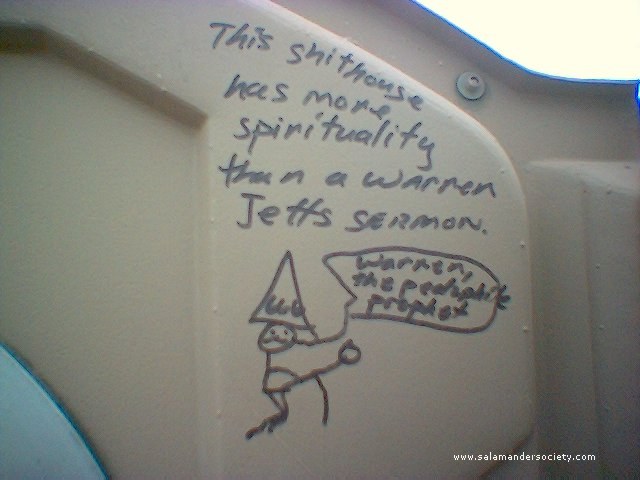 This shithouse
has more
spirituality
than a warren
Jeffs SERMON.
warren,
the pedophile
prophet
www.salamandersociety.com